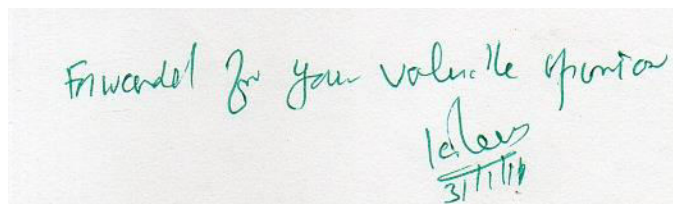 Forwarded for your valuable opinion
31/1/11